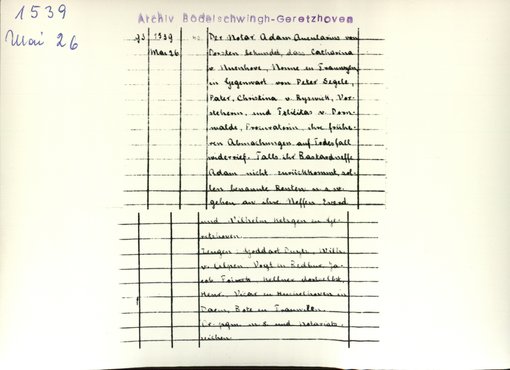 1539
Mai 26
Archiv Bodelschwingh-Geretzhoven
93 1539 Der Notar Adam Anularius von
Mai 26 Dorsten bekundet, dass Catharina
v. Nuenhove, Nonne in Frauweiler,
in Gegenwart von Peter Segele,
Pater, Christina v. Ryswick, Vor-
steherin, und Felicitas v.
walde, Procuratorin, ihre frühe-
ren Abmachungen auf Todesfall
widerrief. Falls ihr Bastardneffe
Adam nicht zurückkommt, sol-
len benannte Renten u.s.w.
gehen an ihre Neffen Everd
und Wilhelm in Ge-
retzhoven.
Zeugen: Goddart, Wilh.
v. Vogt in Bedbur, Ja-
cob, Kellner daselbst,
Henr., Vicar in
Daem, Bote in Frauweiler.
Or. pgm. m. S. und Notariats-
zeichen